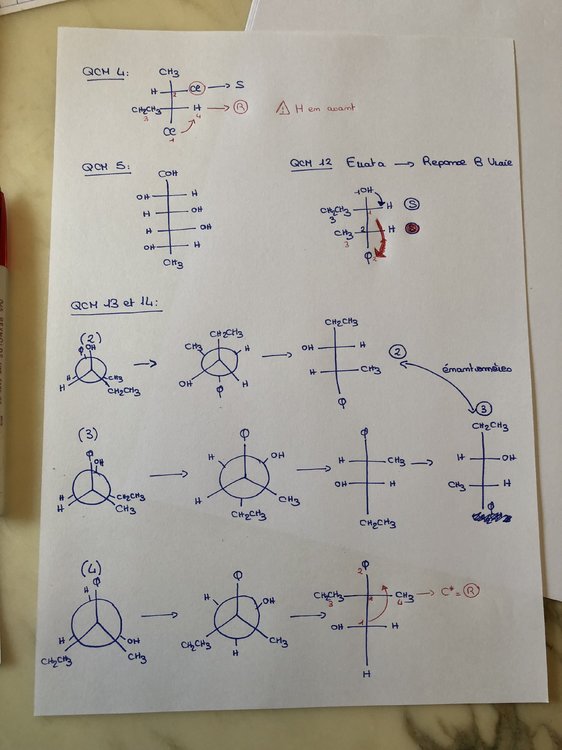 QCM 4:
CH3
H 2 Cl → S
CH2CH3 H → R
3 4
Cl
1
⚠ H en avant
QCM 5:
COH
OH H
H OH
H OH
OH H
CH3
QCM 12 Errata → Reponse B Vraie
OH
CH2CH3 1 H S
3
CH3 2 H
3
Φ
QCM 13 et 14:
(2)
Φ OH
H H CH3
CH2CH3
→
CH2CH3
CH3 H
OH H
Φ
→
CH2CH3
OH H
H CH3
Φ
2
énantiomères
3
(3)
Φ OH
H H CH2CH3
CH3
→
Φ
H OH
H CH3
CH2CH3
→
Φ
H CH3
OH H
CH2CH3
→
CH2CH3
H OH
CH3 H
Φ
(4)
Φ
H
H OH
CH2CH3 CH3
→
Φ
H OH
CH2CH3 CH3
H
→
Φ
2
CH2CH3 CH3 → C* = R
3 4
1
OH H
H